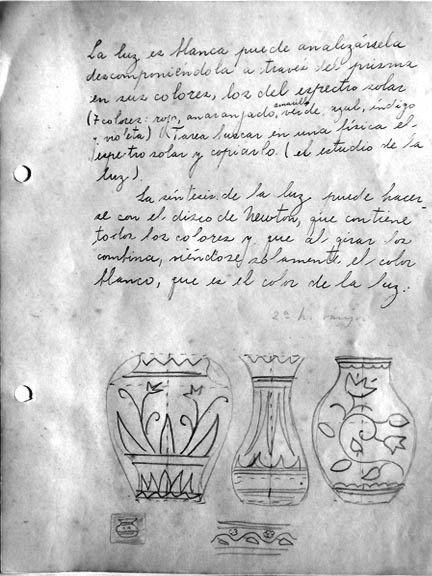 La luz es blanca puede analizársela
descomponiéndola a través del prisma
en sus colores, los del espectro solar
(7 colores: rojo, anaranjado, amarillo, verde, azul, índigo
y violeta) Tarea buscar en una física el
espectro solar y copiarlo. (el estudio de la
luz).
La síntesis de la luz puede hacer-
se con el disco de Newton, que contiene
todos los colores y que al girar los
combina, viéndose solamente el color
blanco, que es el color de la luz.
2ª h.